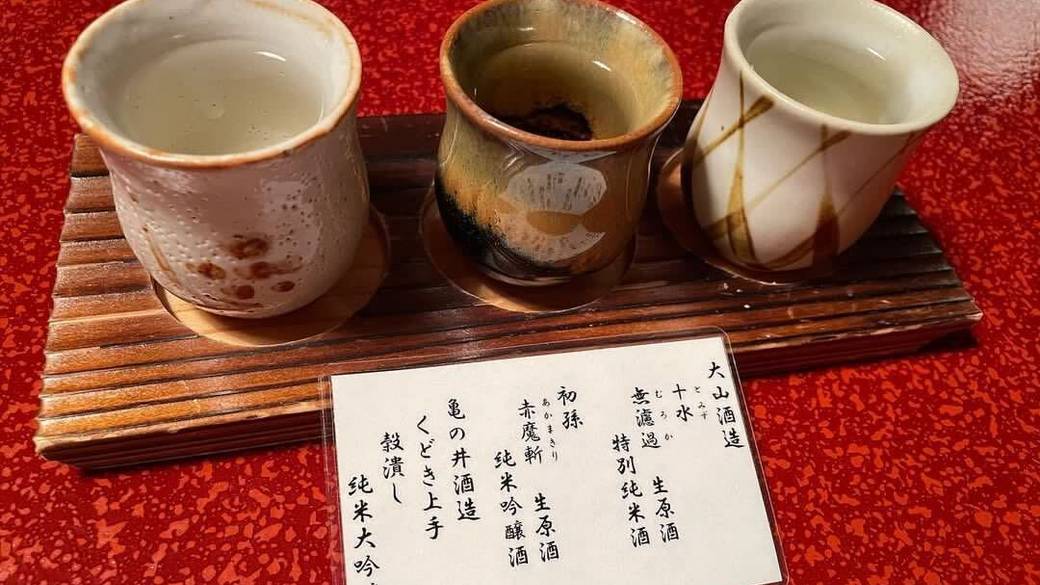 大山酒造
十水
とみず
無濾過　生原酒
むろか
特別純米酒
初孫
赤魔斬　生原酒
あかまきり
純米吟醸酒
亀の井酒造
くどき上手
穀潰し
純米大吟